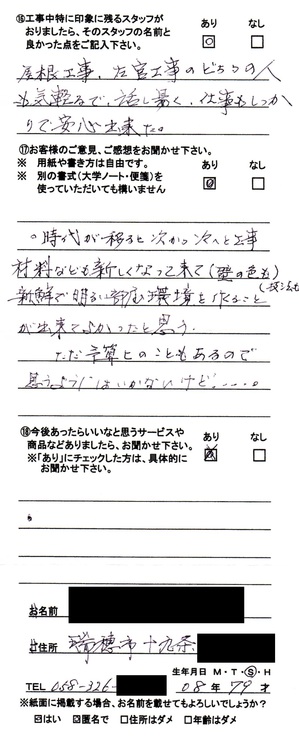 ⑯工事中特に印象に残るスタッフが
おりましたら、そのスタッフの名前と
良かった点をご記入下さい。
あり なし
屋根工事、左官工事のどちらの人
も気軽るで、話し易く、仕事もしっか
りで安心出来た。
⑰お客様のご意見、ご感想をお聞かせ下さい。
※ 用紙や書き方は自由です。
※ 別の書式(大学ノート・便箋)を
使っていただいても構いません
あり なし
○時代が移ると次から次へと工事
材料なども新しくなって来て(壁の色も)
新鮮で明るい 環境を作ること
が出来てよかったと思う。
ただ予算とのこともあるので
思うようにはいかないけど・・・・。
⑱今後あったらいいなと思うサービスや
商品などありましたら、お聞かせ下さい。
※「あり」にチェックした方は、具体的に
お聞かせ下さい。
あり なし
お名前
ご住所 瑞穂市十九条
生年月日 M・T・S・H
TEL 058-326- 08年 79才
※紙面に掲載する場合、お名前を載せてもよろしいでしょうか?
はい 匿名で 住所はダメ 年齢はダメ